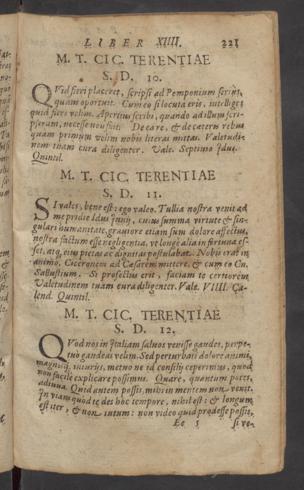 LIBER XIIII. 221
M. T. CIC. TERENTIAE
S. D. 10.
QVid fieri placeret, scripsi ad Pomponium serius,
quam oportuit. Cum eo si locuta eris, intelliges
quid fieri velim. Apertius scribi, quando ad illum scri-
pseram, necesse non fuit. De ea re, & de cæteris rebus
quam primum velim nobis literas mittas. Valetudi-
nem tuam cura diligenter. Vale. Septimo Idus
Quintil.
M. T. CIC. TERENTIAE
S. D. 11.
SI vales, bene est: ego valeo. Tullia nostra venit ad
me pridie Idus Iunij, cuius summa virtute & sin-
gulari humanitate, graviore etiam sum dolore affectus,
nostra factum esse negligentia, vt longè alia in fortuna es-
set, atq; eius pietas ac dignitas postulabat. Nobis erat in
animo, Ciceronem ad Cæsarem mittere, & cum eo Cn.
Sallustium. Si profectus erit, faciam te certiorem
Valetudinem tuam cura diligenter. Vale. VIIII. Ca-
lend. Quintil.
M. T. CIC. TERENTIAE
S. D. 12.
QVod nos in Italiam salvos venisse gaudes, perpe-
tuò gaudeas velim. Sed perturbati dolore animi,
magnisq; iniurijs, metuo ne id consilij ceperimus, quod
non facile explicare possimus. Quare, quantum potes,
adiuva. Quid autem possis, mihi in mentem non venit.
In viam quod te des hoc tempore, nihil est: & longum
est iter, & non tutum: non video quid prodesse possis,
Ee 5 si ve-